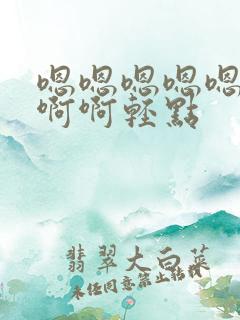 嗯嗯嗯嗯嗯
啊啊轻點
翡翠大白菜
未经同意禁止转载